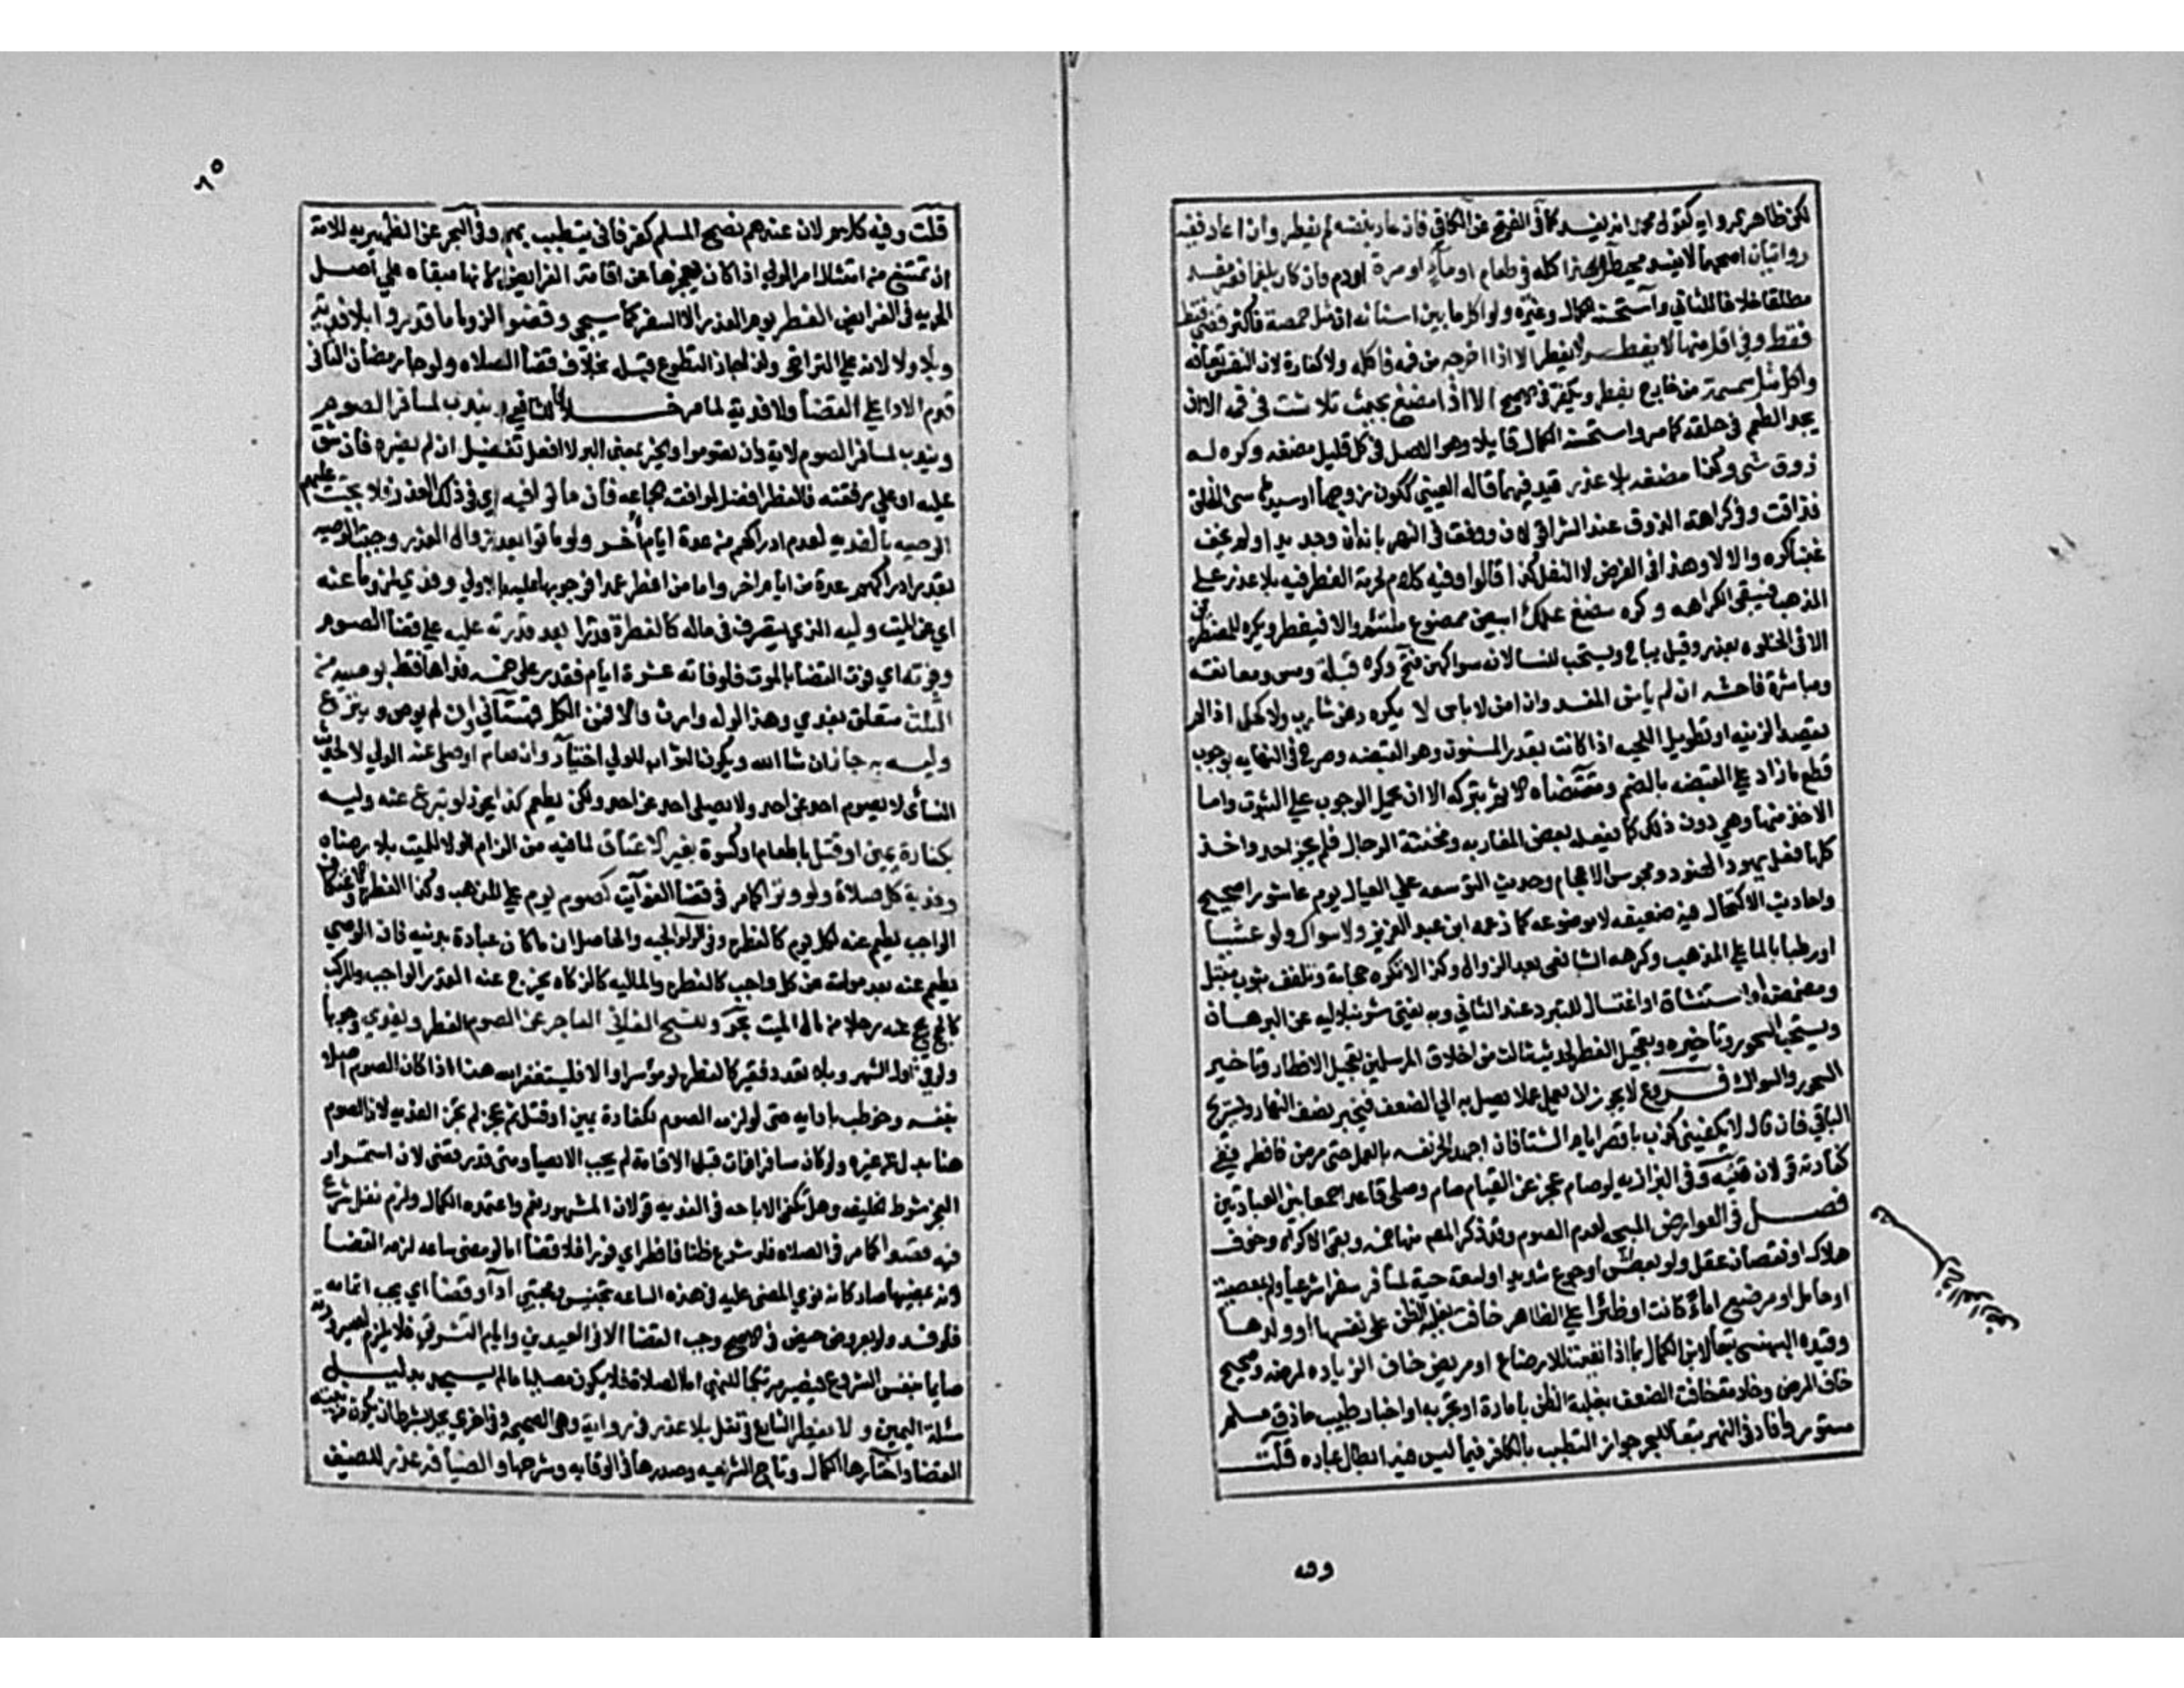 لكن ظاهر الرواية كقول محمد انه يفسد كما في الفتح عن الكافي فان عاد بنفسه لم يفطر وان اعاد ففيه
روايتان اصحهما لا يفسد محيط وهذا كله في طعام او ماء او مرة او دم وان كان بلغما فغير مفسد
مطلقا خلافا للثاني واستحسنه الكمال وغيره ولو اكل ما بين اسنانه ان مثل حمصة فاكثر قضى فقط
فقط وفي اقل منها لا يفطر لا يفطر الا اذا اخرجه من فمه فاكله ولا كفارة لان النفس تعافه
واكل مثل سمسمة من خارج يفطر ويكفر في الاصح الا اذا مضغ بحيث تلاشت في فمه الا ان
يجد الطعم في حلقه كما مر واستحسنه الكمال قايلا وهو الاصل في كل قليل مضغه وكره له
ذوق شي وكذا مضغه بلا عذر قيد فيهما قاله العيني ككون زوجها او سيدها سي الخلق
فذاقت وفي كراهة الذوق عند الشرا قولان ووفق في النهر بانه ان وجد بدا ولم يخف
غبنا كره والا لا وهذا في الفرض لا النفل كذا قالوا وفيه كلام لحرمة الفطر فيه بلا عذر على
المذهب فتبقى الكراهه وكره مضغ علك ابيض ممضوغ ملتئم والا فيفطر ويكره للمفطرين
الا في الخلوه بعذر وقيل يباح ويستحب للنسا لانه سواكهن فتح وكره قبلة ومس ومعانقه
ومباشرة فاحشه ان لم يامن المفسد وان امن لا باس لا يكره دهن شارب ولا كحل اذا لم
يقصد الزينه او تطويل اللحيه اذا كانت بقدر المسنون وهو القبضه وصرح في النهايه بوجوب
قطع ما زاد على القبضه بالضم ومقتضاه الاثم بتركه الا ان يحمل الوجوب على الثبوت واما
الاخذ منها وهي دون ذلك كما يفعله بعض المغاربه ومخنثة الرجال فلم يبحه احد واخذ
كلها فعل يهود الهنود ومجوس الاعجام وحديث التوسعه على العيال يوم عاشورا صحيح
واحاديث الاكتحال فيه ضعيفه لا موضوعه كما زعمه ابن عبد العزيز ولا سواك ولو عشيا
او رطبا بالما على المذهب وكرهه الشافعي بعد الزوال وكذا لا تكره حجامة وتلفف بثوب مبتل
ومضمضة او استنشاق او اغتسال للتبرد عند الثاني وبه يفتى شرنبلاليه عن البرهان
ويستحب السحور وتاخيره وتعجيل الفطر لحديث ثلاث من اخلاق المرسلين تعجيل الافطار وتاخير
السحور والسواك فروع لا يجوز ان يعمل عملا يصل به الى الضعف فيخبز نصف النهار ويستريح
الباقي فان قال لا يكفيني كذب باقصر ايام الشتا فان اجهد الحر نفسه بالعمل حتى مرض فافطر ففي
كفارته قولان قنيه وفي البزازيه لو صام عجز عن القيام صام وصلى قاعدا جمعا بين العبادتين
فصل في العوارض المبيحه لعدم الصوم وقد ذكر المصنف منها خمسه وبقي الاكراه وخوف
هلاك او نقصان عقل ولو بعطش او جوع شديد او لسعة حية لمسافر سفرا شرعيا ولو بمعصية
او حامل او مرضع اما كانت او ظئرا على الظاهر خافت بغلبة الظن على نفسها او ولدها
وقيده البهنسي تبعا لابن الكمال بما اذا تعينت للارضاع او مريض خاف الزياده لمرضه وصحيح
خاف المرض وخادمة خافت الضعف بغلبة الظن بامارة او تجربه او اخبار طبيب حاذق مسلم
مستور وافاد في النهر تبعا للبحر جواز التطبب بالكافر فيما ليس فيه ابطال عباده قلت
وفيه
٦٥
قلت وفيه كلام لان عندهم نصح المسلم كفر فاني يتطبب بهم وفي البحر عن الظهيريه للامة
ان تمتنع من امتثال امر المولى اذا كان يعجزها عن اقامة الفرايض لانها مبقاه على اصل
الحريه في الفرايض الفطر يوم العذر الا السفر كما سيجي وقضوا لزوما ما قدروا بلا فديه
وبلا ولا لانه على التراخي ولذا جاز التطوع قبله بخلاف قضا الصلاه ولو جا رمضان الثاني
قدم الادا على القضا ولا فدية لما مر خلافا للشافعي ويندب لمسافر الصوم
ويندب لمسافر الصوم لاية وان تصوموا والخير بمعنى البر لا افعل تفضيل ان لم يضره فان شق
عليه او على رفقته فالفطر افضل لموافقته الجماعه فان ماتوا فيه اي في ذلك العذر فلا تجب عليهم
الوصيه بالفديه لعدم ادراكهم من عدة ايام اخر ولو ماتوا بعد زوال العذر وجبت الوصيه
بقدر ادراكهم عدة من ايام اخر واما من افطر عمدا فوجوبها عليه بالاولى وفدى لزوما عنه
اي عن الميت وليه الذي يتصرف في ماله كالفطرة قدرا بعد قدرته عليه على قضا الصوم
وفوته اي فوت القضا بالموت فلو فاته عشرة ايام فقدر على خمسه فداها فقط بوصيته من
الثلث متعلق بفدى وهذا لو له وارث والا فمن الكل قهستاني وان لم يوص وتبرع
وليه به جاز ان شا الله ويكون الثواب للولي اختيار وان صام او صلى عنه الولي لا لحديث
النسائي لا يصوم احد عن احد ولا يصلي احد عن احد ولكن يطعم كذا يجوز لو تبرع عنه وليه
بكفارة يمين او قتل باطعام او كسوة بغير اعتاق لما فيه من الزام الولا للميت بلا رضاه
وفدية كل صلاة ولو وترا كما مر في قضا الفوايت كصوم يوم على المذهب وكذا الفطره والاعتكاف
الواجب يطعم عنه لكل يوم كالفطره ولوالجيه والحاصل ان ما كان عبادة بدنيه فان الوصي
يطعم عنه بعد موته عن كل واجب كالفطره والماليه كالزكاه يخرج عنه القدر الواجب والمركب
كالحج يحج عنه رجلا من مال الميت بحر وللشيخ الفاني العاجز عن الصوم الفطر ويفدي وجوبا
ولو في اول الشهر وبلا تعدد فقير كالفطره لو موسرا والا فليستغفر الله هذا اذا كان الصوم اصلا
بنفسه وخوطب بادايه حتى لو لزمه الصوم لكفارة يمين او قتل ثم عجز لم تجز الفديه لان الصوم
هنا بدل عن غيره ولو كان مسافرا فمات قبل الاقامة لم يجب الايصا ومتى قدر قضى لان استمرار
العجز شرط الخليفه وهل تكفي الاباحه في الفديه قولان المشهور نعم واعتمده الكمال ولزم نفل شرع
فيه قصدا كما مر في الصلاه فلو شرع ظنا فافطر اي فورا فلا قضا اما لو مضى ساعه لزمه القضا
لانه بمضيها صار كانه نوى المضي عليه في هذه الساعه تجنيس ومجتبى ادا وقضا اي يجب اتمامه
فلو فسد ولو بعروض حيض في الاصح وجب القضا الا في العيدين وايام التشريق فلا يلزم لصيرورته
صايما بنفس الشروع فيصير مرتكبا للنهي اما الصلاة فلا يكون مصليا ما لم يسجد بدليل
مسئلة اليمين ولا يفطر الشارع في نفل بلا عذر في رواية وهي الصحيحه وفي اخرى يحل بشرط ان يكون من نيته
القضا واختارها الكمال وتاج الشريعه وصدرها في الوقايه وشرحها والضيافه عذر للضيف